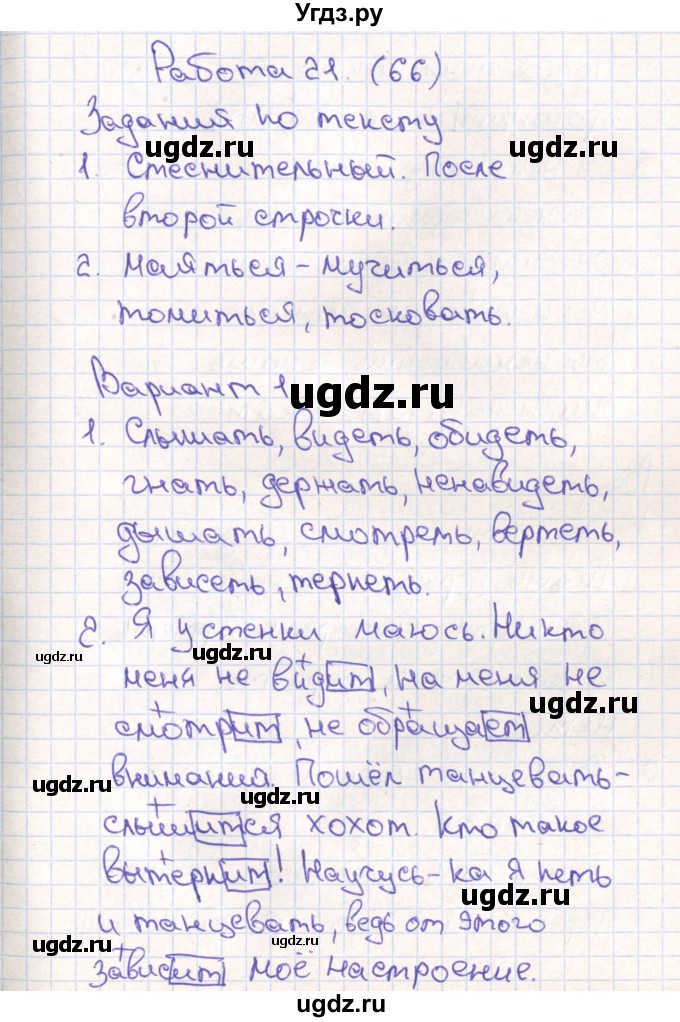 Угдз.ру
Работа 21. (66)
Задания по тексту
ugdz.ru ugdz.ru
1. Стеснительный. После
второй строчки.
2. Маяться – мучиться,
томиться, тосковать.
Вариант 1
ugdz.ru
1. Слышать, видеть, обидеть,
гнать, держать, ненавидеть,
дышать, смотреть, вертеть,
зависеть, терпеть.
2. Я у стенки маюсь. Никто
ugdz.ru ugdz.ru
меня не видит, на меня не
ugdz.ru
смотрит, не обращает
внимания. Пошёл танцевать –
ugdz.ru ugdz.ru
слышится хохот. Кто такое
вытерпит! Научусь-ка я петь
ugdz.ru
и танцевать, ведь от этого
ugdz.ru ugdz.ru
зависит моё настроение.
ugdz.ru
ugdz.ru